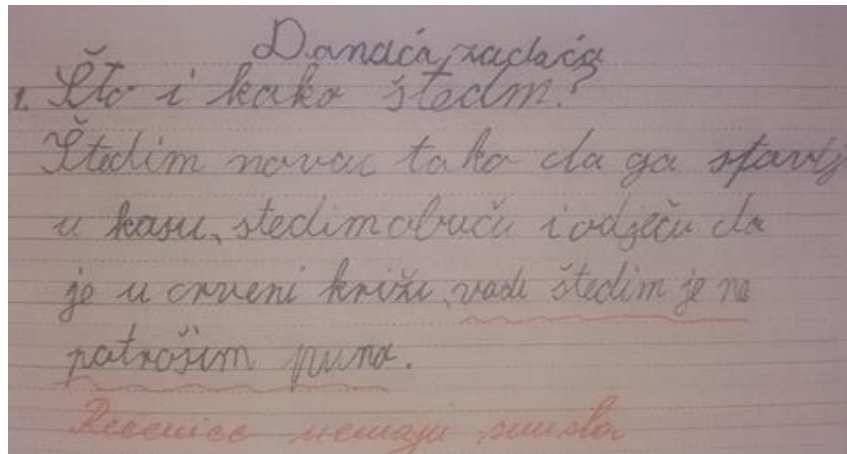 Danaća zadaća
1. Što i kako štedim?
Štedim novac tako da ga stavlj
u kasu, stedim obuču i odječu da
je u crveni križu, vodu štedim je ne
patrošim puno.
Rečenice nemaju smisla